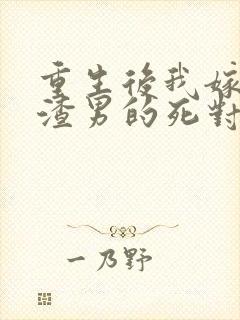 重生後我嫁
渣男的死對
一乃野